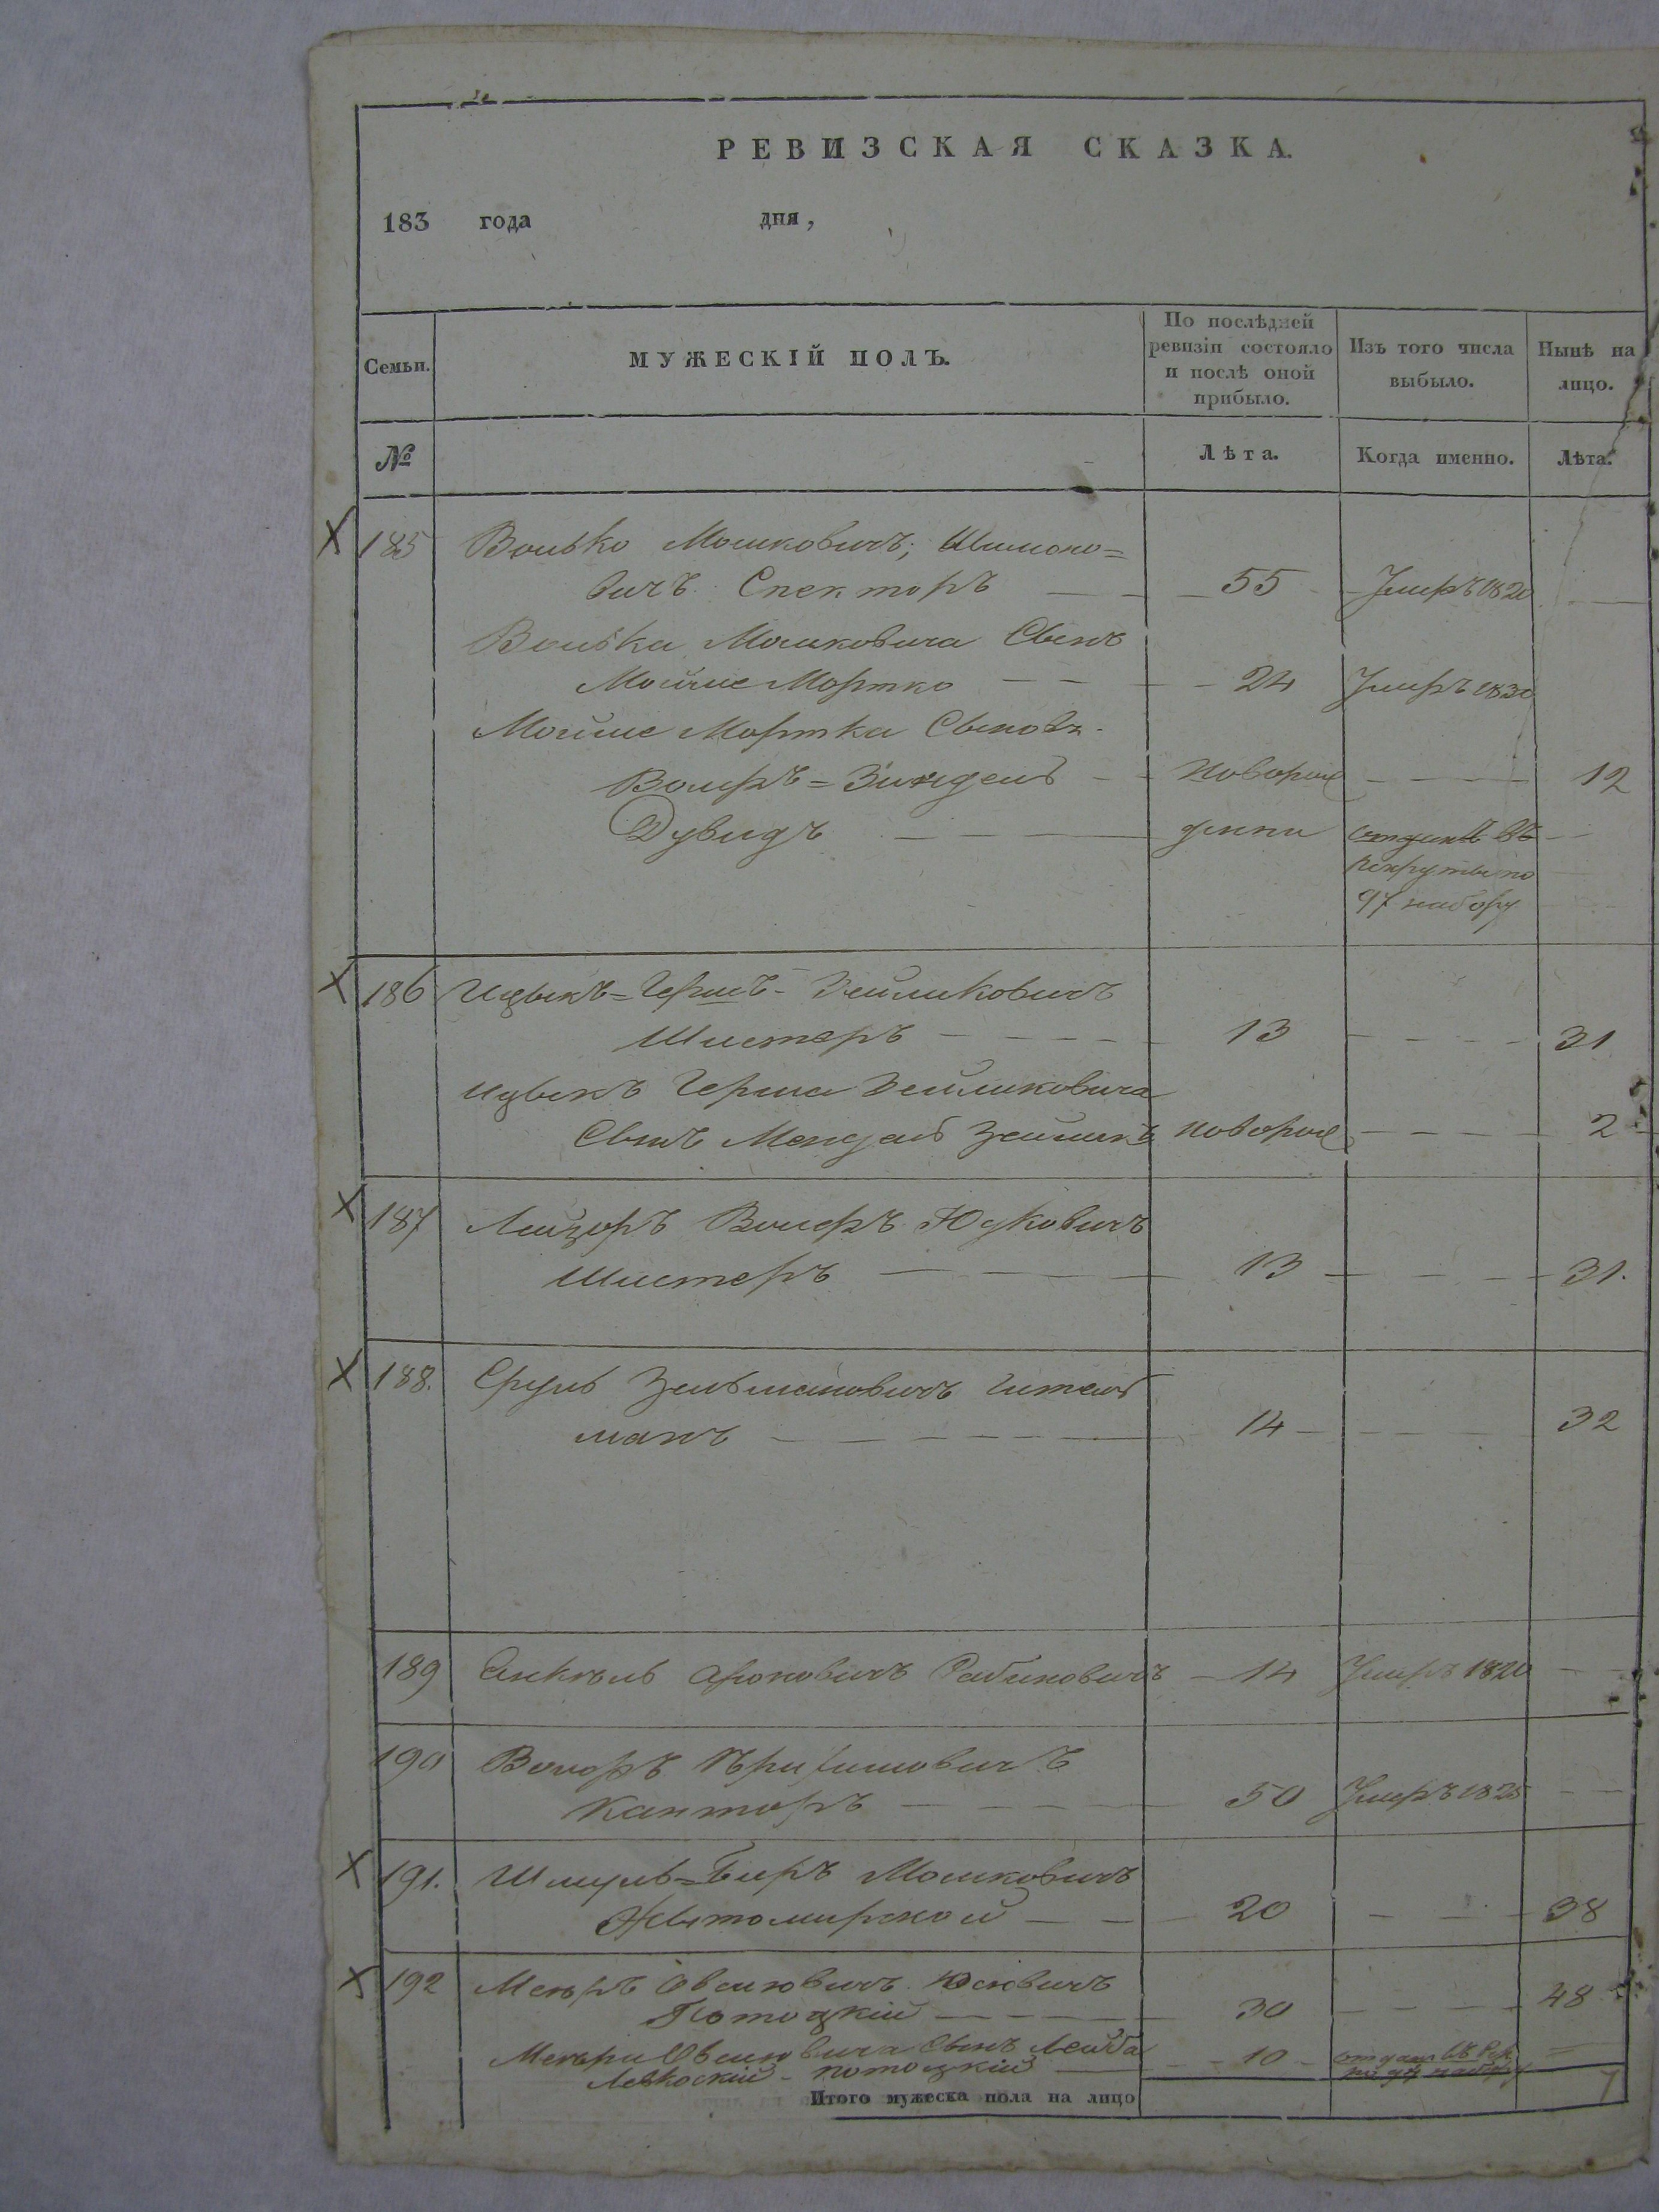 РЕВИЗСКАЯ СКАЗКА.
183 года дня,
Семьи.
МУЖЕСКІЙ ПОЛЪ.
По послѣдней ревизіи состояло и послѣ оной прибыло.
Изъ того числа выбыло.
Нынѣ на лицо.
№
Лѣта.
Когда именно.
Лѣта.
185 Волько Мошковичъ; Шимоно=
вичъ Спекторъ 55 Умиръ 1820
Волька Мошковича Сынъ
Мойше Мортко 24 Умиръ 1830
Мойше Мортка Сыновя
Волфъ=Зиндель новорож 12
Дувидъ отданъ въ
рекруты по
97 набору
186 Ицыкъ=Гершъ- Зейликовичъ
Шистеръ 13 31
Ицыкъ Герша Зейликовича
Сынъ Мендель Зейликъ новорож 2
187 Лейзоръ Волфъ Юдковичъ
Шистеръ 13 31.
188. Сруль Зельмановичъ Гитель
манъ 14 32
189 Янкель Ароновичъ Рабиновичъ 14 Умиръ 1820
190 Волфъ
Канторъ 50 Умиръ 1825
191. Шмуль=Беръ Мошковичъ
Жытомирской 20 38
192 Мееръ Овсиовичъ Юсковичъ
Потоцкій 30 48
Меера Овсиовича Сынъ Лейба
потоцкій 10 отданъ въ Рек.
набору
Итого мужеска пола на лицо 7